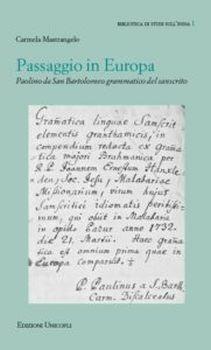 BIBLIOTECA DI STUDI SULL'INDIA 1
Carmela Mastrangelo
Passaggio in Europa
Paolino da San Bartolomeo grammatico del sanscrito
Gramatica linguae Samscrit
elementis granthamicis, in
compendium redacta ex Grama-
tica majori Brahmanica per
R. P. Joannem Ernestum Hanxle-
den, Soc. Jesu, Malabariae
Missionarium, virum hujus
Samscriticei idiomatis peritissi-
mum, qui obiit in Malabaria
in opido Pazur anno 1732.
die 21. Martii. Haec grama-
tica est omnium prima quae in
Europa comparuit.
P. Paulinus a S. Barth.
Carm. Discalceatus
EDIZIONI UNICOPLI